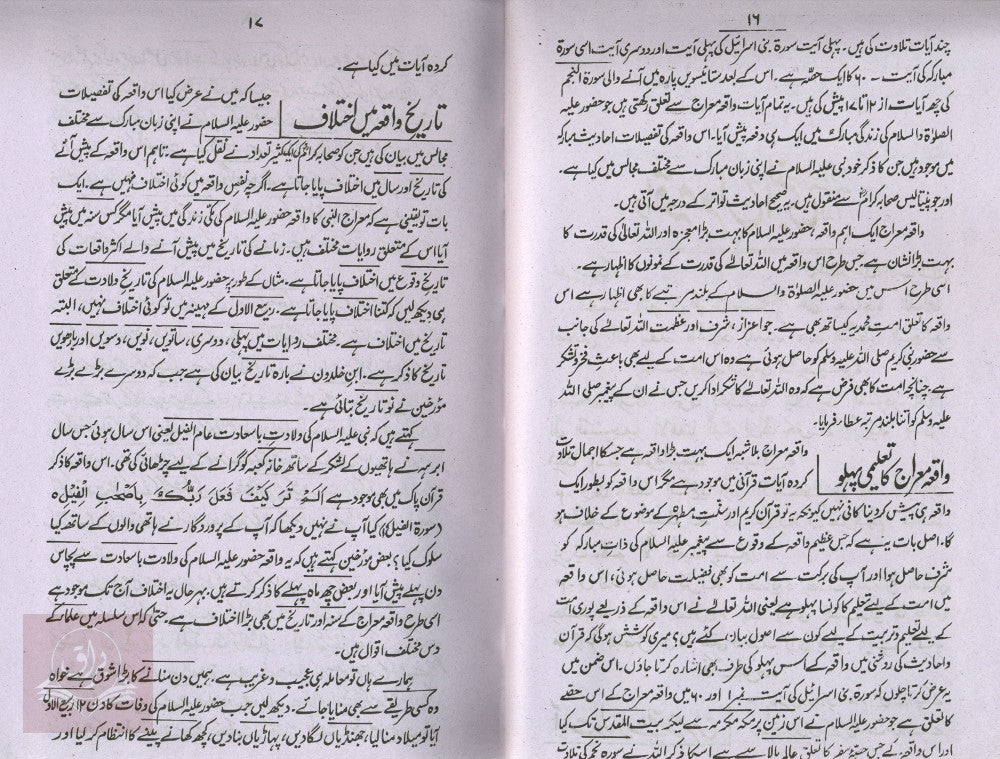 ۱۶
چند آیات تلاوت کی ہیں۔ پہلی آیت سورۃ بنی اسرائیل کی پہلی آیت اور دوسری آیت اسی سورۃ
مبارکہ کی آیت - ۶۰ کا ایک حصّہ ہے۔ اس کے بعد ستائیسویں پارہ میں آنے والی سورۃ النجم
کی چھ آیات از ۱۲ تا ۱۷ پیش کی ہیں۔ یہ تمام آیات واقعہ معراج سے تعلق رکھتی ہیں جو حضور علیہ
الصلوٰۃ والسلام کی زندگی مبارک میں ایک ہی دفعہ پیش آیا۔ اس واقعہ کی تفصیلات احادیث مبارکہ
میں موجود ہیں جن کا ذکر خود نبی علیہ السلام نے اپنی زبان مبارک سے مختلف مجالس میں کیا ہے۔
اور جو پینتالیس صحابہ کرامؓ سے منقول ہیں۔ یہ صحیح احادیث تواتر کے درجہ میں آتی ہیں۔
واقعہ معراج ایک اہم واقعہ، حضور علیہ السلام کا بہت بڑا معجزہ اور اللہ تعالیٰ کی قدرت کا
بہت بڑا نشان ہے۔ جس طرح اس واقعہ میں اللہ تعالےٰ کی قدرت کے نمونوں کا اظہار ہے۔
اسی طرح اس میں حضور علیہ الصلوٰۃ والسلام کے بلند مرتبے کا بھی اظہار ہے اس
واقعہ کا تعلق امت محمدیہ کیساتھ بھی ہے۔ جو اعزاز، شرف اور عظمت اللہ تعالےٰ کی جانب
سے حضور نبی کریم صلی اللہ علیہ وسلم کو حاصل ہوئی ہے وہ اس امت کے لیے بھی باعث فخر و تشکر
ہے چنانچہ امت کا بھی فرض ہے کہ وہ اللہ تعالےٰ کا شکر ادا کریں جس نے ان کے پیغمبر صلی اللہ
علیہ وسلم کو اتنا بلند مرتبہ عطا فرمایا۔
واقعہ معراج کا تعلیمی پہلو
واقعہ معراج بلاشبہ ایک بہت بڑا واقعہ ہے جس کا اجمال تلاوت
کردہ آیات قرآنی میں موجود ہے مگر اس واقعہ کو بطور ایک
واقعہ ہی پیش کر دینا کافی نہیں کیونکہ یہ تو قرآن کریم اور سنّت مطہرہ کے موضوع کے خلاف ہو
گا۔ اصل بات یہ ہے کہ جس عظیم واقعہ کے وقوع سے پیغمبر علیہ السلام کی ذات مبارکہ کو
شرف حاصل ہوا اور آپ کی برکت سے امت کو بھی فضیلت حاصل ہوئی، اس واقعہ
میں امت کے لیے تعلیم کا کونسا پہلو ہے یعنی اللہ تعالےٰ نے اس واقعہ کے ذریعے پوری امت
کے لیے تعلیم و تربیت کے لیے کون سے اصول بیان کئے ہیں؟ میری کوشش ہوگی کہ قرآن
و احادیث کی روشنی میں واقعہ کے اس پہلو کی طرف بھی اشارہ کرتا جاؤں۔ اس ضمن میں
یہ عرض کرتا چلوں کہ سورۃ بنی اسرائیل کی آیت نمبر ۱ اور ۶۰ میں واقعہ معراج کے اس حصے
کا تعلق ہے جو حضور علیہ السلام نے اس زمین پر مکہ مکرمہ سے لیکر بیت المقدس تک کیا
اور اس واقعہ کے جس حصۂ سفر کا تعلق عالم بالا سے ہے اسکا ذکر اللہ نے سورہ نجم کی تلاوت
۱۷
کردہ آیات میں کیا ہے۔
تاریخ واقعہ میں اختلاف
جیسا کہ میں نے عرض کیا اس واقعہ کی تفصیلات
حضور علیہ السلام نے اپنی زبان مبارک سے مختلف
مجالس میں بیان کی ہیں جن کو صحابہ کرامؓ کی ایک کثیر تعداد نے نقل کیا ہے۔ تاہم اس واقعہ کے پیش آنے
کی تاریخ اور سال میں اختلاف پایا جاتا ہے۔ اگرچہ نفسِ واقعہ میں کوئی اختلاف نہیں ہے۔ ایک
بات تو یقینی ہے کہ معراج النبی کا واقعہ حضور علیہ السلام کی مکی زندگی میں پیش آیا مگر کس سنہ میں پیش
آیا اس کے متعلق روایات مختلف ہیں۔ زمانے کی تاریخ میں پیش آنے والے اکثر واقعات کی
تاریخ وقوع میں اختلاف پایا جاتا ہے۔ مثال کے طور پر حضور علیہ السلام کی تاریخ ولادت کے متعلق
ہی دیکھ لیں کہ کتنا اختلاف پایا جاتا ہے۔ ربیع الاول کے مہینہ میں تو کوئی اختلاف نہیں، البتہ
تاریخ میں اختلاف ہے۔ مختلف روایات میں پہلی، دوسری، ساتویں، نویں، دسویں اور بارھویں
تاریخ کا ذکر ہے۔ ابن خلدون نے بارہ تاریخ بیان کی ہے جب کہ دوسرے بڑے بڑے
مؤرخین نے نو تاریخ بتائی ہے۔
کہتے ہیں کہ نبی علیہ السلام کی ولادت باسعادت عام الفیل یعنی اس سال ہوئی جس سال
ابرہہ نے ہاتھیوں کے لشکر کے ساتھ خانہ کعبہ کو گرانے کے لیے چڑھائی کی تھی۔ اس واقعہ کا ذکر
قرآن پاک میں بھی موجود ہے اَلَمْ تَرَ کَیْفَ فَعَلَ رَبُّکَ بِاَصْحٰبِ الْفِیْلِ ہ
(سورۃ الفیل) کیا آپ نے نہیں دیکھا کہ آپ کے پروردگار نے ہاتھی والوں کے ساتھ کیا
سلوک کیا؟ بعض مورخین کہتے ہیں کہ یہ واقعہ حضور علیہ السلام کی ولادت باسعادت سے پچاس
دن پہلے پیش آیا اور بعض چھ ماہ پہلے کا ذکر کرتے ہیں۔ بہرحال یہ اختلاف آج تک موجود ہے
اسی طرح واقعہ معراج کے سنہ اور تاریخ میں بھی بڑا اختلاف ہے۔ حتیٰ کہ اس سلسلہ میں علماء کے
دس مختلف اقوال ہیں۔
ہمارے ہاں تو معاملہ ہی عجیب و غریب ہے۔ ہمیں دن منانے کا بڑا شوق ہے خواہ
وہ کسی طریقے سے بھی منایا جائے۔ دیکھ لیں جب حضور علیہ السلام کی وفات کا دن ۱۲ ربیع الاول
آیا تو میلاد منا لیا، جھنڈیاں لگا دیں، پہاڑیاں بنا دیں، کچھ کھانے پینے کا انتظام کر لیا اور